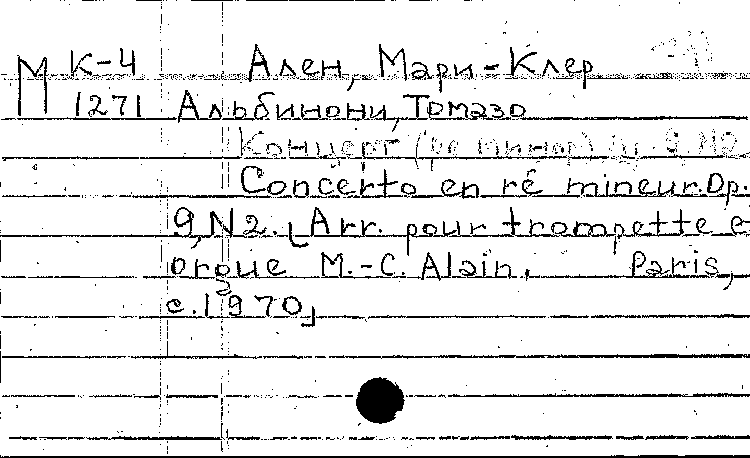 М К-4 Ален, Мари-Клер
1271 Альбинони, Томазо
Концерт (ре минор) ц. 9, N2
Concerto en ré mineur. Op.
9, N2. [Arr. pour trompette e
orgue M.-C. Alain. Paris,
c. 1970]